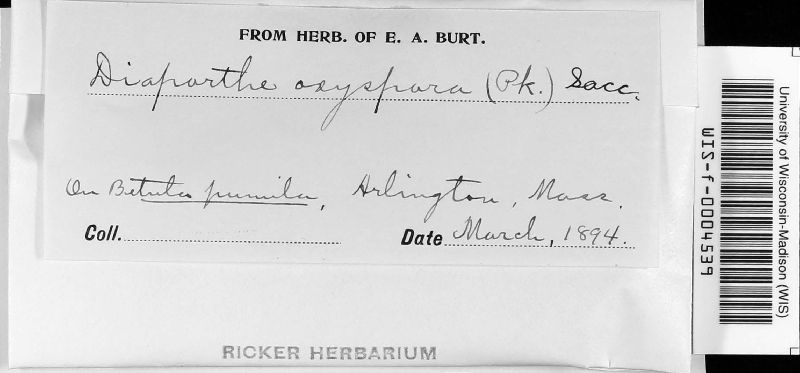 FROM HERB. OF E. A. BURT.
Diaporthe oxyspora (Pk.) Sacc.
On Betula pumila, Arlington, Mass.
Coll. Date March, 1894.
RICKER HERBARIUM
WIS-f-0004539
University of Wisconsin-Madison (WIS)